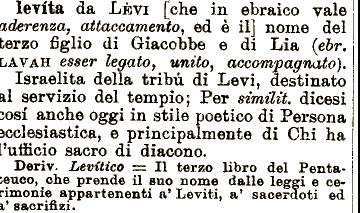 levíta da LÈVI [che in ebraico vale
aderenza, attaccamento, ed è il] nome del
terzo figlio di Giacobbe e di Lia (ebr.
LAVAH esser legato, unito, accompagnato).
Israelita della tribú di Levi, destinato
al servizio del tempio; Per similit. dicesi
cosí anche oggi in stile poetico di Persona
ecclesiastica, e principalmente di Chi ha
l'ufficio sacro di diacono.
Deriv. Levítico = Il terzo libro del Penta-
teuco, che prende il suo nome dalle leggi e ce-
rimonie appartenenti a' Leviti, a' sacerdoti ed
a' sacrifizi.